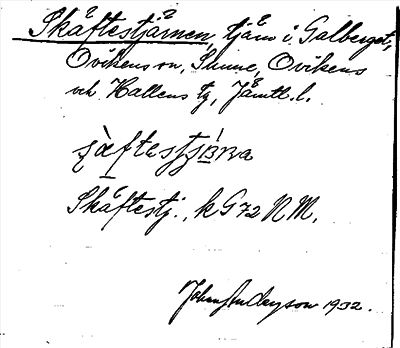 Skäftestjärnen, tjärn i Galberget,
Ovikens sn, Sunne, Ovikens
och Hallens tg, Jämtl. l.
Skäftestj., k G 72 N M.
John Andersson 1932.